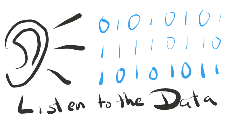 0 1 0 1 0 1 0
1 1 1 1 0 1 1 0
1 0 1 0 1 0 1 1
Listen to the Data